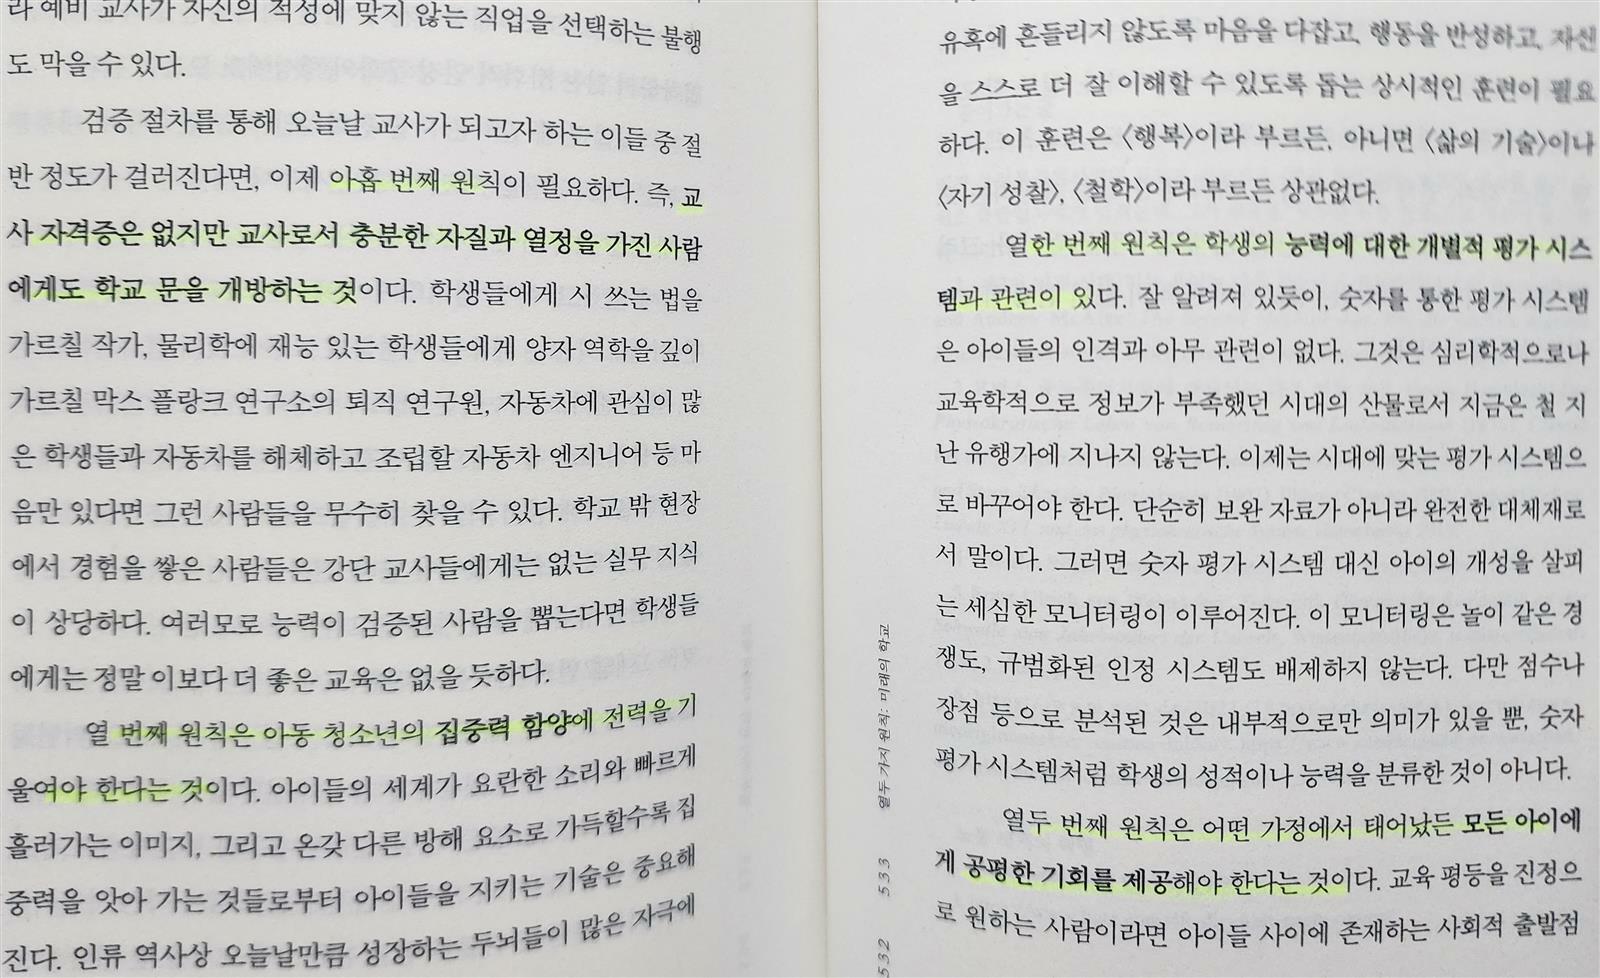 라 예비 교사가 자신의 적성에 맞지 않는 직업을 선택하는 불행
도 막을 수 있다.
검증 절차를 통해 오늘날 교사가 되고자 하는 이들 중 절
반 정도가 걸러진다면, 이제 아홉 번째 원칙이 필요하다. 즉, 교
사 자격증은 없지만 교사로서 충분한 자질과 열정을 가진 사람
에게도 학교 문을 개방하는 것이다. 학생들에게 시 쓰는 법을
가르칠 작가, 물리학에 재능 있는 학생들에게 양자 역학을 깊이
가르칠 막스 플랑크 연구소의 퇴직 연구원, 자동차에 관심이 많
은 학생들과 자동차를 해체하고 조립할 자동차 엔지니어 등 마
음만 있다면 그런 사람들을 무수히 찾을 수 있다. 학교 밖 현장
에서 경험을 쌓은 사람들은 강단 교사들에게는 없는 실무 지식
이 상당하다. 여러모로 능력이 검증된 사람을 뽑는다면 학생들
에게는 정말 이보다 더 좋은 교육은 없을 듯하다.
열 번째 원칙은 아동 청소년의 집중력 함양에 전력을 기
울여야 한다는 것이다. 아이들의 세계가 요란한 소리와 빠르게
흘러가는 이미지, 그리고 온갖 다른 방해 요소로 가득할수록 집
중력을 앗아 가는 것들로부터 아이들을 지키는 기술은 중요해
진다. 인류 역사상 오늘날만큼 성장하는 두뇌들이 많은 자극에
유혹에 흔들리지 않도록 마음을 다잡고, 행동을 반성하고, 자신
을 스스로 더 잘 이해할 수 있도록 돕는 상시적인 훈련이 필요
하다. 이 훈련은 〈행복〉이라 부르든, 아니면 〈삶의 기술〉이나
〈자기 성찰〉, 〈철학〉이라 부르든 상관없다.
열한 번째 원칙은 학생의 능력에 대한 개별적 평가 시스
템과 관련이 있다. 잘 알려져 있듯이, 숫자를 통한 평가 시스템
은 아이들의 인격과 아무 관련이 없다. 그것은 심리학적으로나
교육학적으로 정보가 부족했던 시대의 산물로서 지금은 철 지
난 유행가에 지나지 않는다. 이제는 시대에 맞는 평가 시스템으
로 바꾸어야 한다. 단순히 보완 자료가 아니라 완전한 대체재로
서 말이다. 그러면 숫자 평가 시스템 대신 아이의 개성을 살피
는 세심한 모니터링이 이루어진다. 이 모니터링은 놀이 같은 경
쟁도, 규범화된 인정 시스템도 배제하지 않는다. 다만 점수나
장점 등으로 분석된 것은 내부적으로만 의미가 있을 뿐, 숫자
평가 시스템처럼 학생의 성적이나 능력을 분류한 것이 아니다.
열두 번째 원칙은 어떤 가정에서 태어났든 모든 아이에
게 공평한 기회를 제공해야 한다는 것이다. 교육 평등을 진정으
로 원하는 사람이라면 아이들 사이에 존재하는 사회적 출발점
532 533 열두 가지 원칙: 미래의 학교